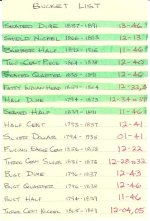 BUCKET LIST
SEATED DIME 1837-1891 13-46
SHIELD NICKEL 1866-1883 12-13
BARBER HALF 1892- 11-46
TWO CENT PIECE 1864- 12-40
SEATED QUARTER 1838-1891 12-46
FATTY INDIAN HEAD 1859-
HALF DIME 1794-1873
SEAED HALF 1839-1891 11-46
HALF CENT 1793-1857 12-41
SILVER DOLLAR 1794-1935 01-41
FLYING EAGLE CENT 1856-1858 12-22
THREE CENT SILVER 1851-1873
BUST DIME 1796-1837 12-43
BUST QUARTER 1796-1838 12-46
BUST HALF 1794-1839 11-46
THREE CENT NICKEL 1865-1889 12-04,05